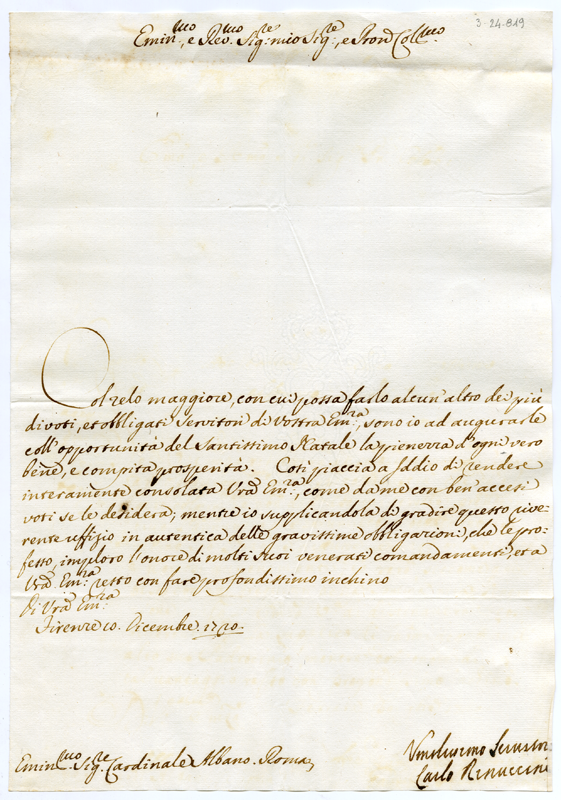 3-24-819
Emin.mo, e Rev.mo Sig.re mio Sig.re, e Pron Coll.mo
Col zelo maggiore, con cui possa farlo alcun'altro dei più
divoti, et obbligati Servitori di Vostra Em.za, sono io ad augurarle
coll'opportunità del Santissimo Natale la pienezza d'ogni vero
bene, e compita prosperità. Così piaccia a Iddio di rendere
interamente consolata Vra Em.za, come da me con ben'accesi
voti se le desidera; mentre io supplicandola di gradire questo rive-
rente uffizio in autentica delle gravissime obbligazioni, che le pro-
fesso, imploro l'onore di molti suoi venerati comandamenti, et a
Vra Em.za resto con fare profondissimo inchino
Di Vra Em.za
Firenze 10. Dicembre. 1720.
Emin.mo Sig.re Cardinale Albano. Roma
Umilissimo Servitor
Carlo Rinuccini